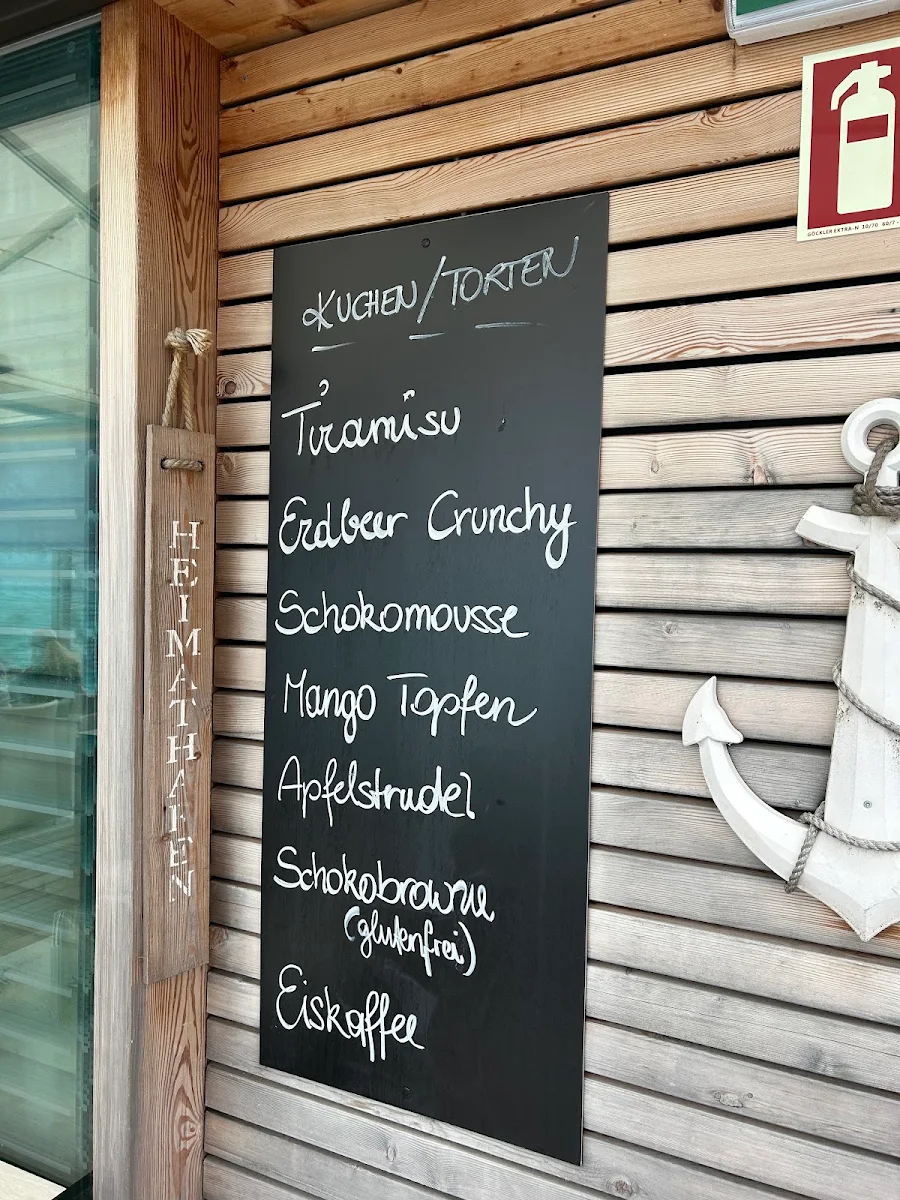 KUCHEN/TORTEN
Tiramisu
Erdbeer Crunchy
Schokomousse
Mango Topfen
Apfelstrudel
Schokobrownie
(glutenfrei)
Eiskaffee
HEIMATHAFEN